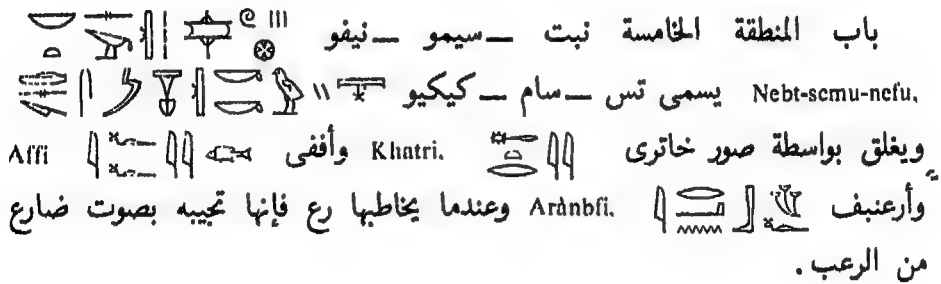 باب المنطقة الخامسة نبت ـ سيمو ـ نيفو
Nebt-semu-nefu. يسمى تس ـ سام ـ كيكيو
ويغلق بواسطة صور خاترى Khatri. وأففى Affi
وأرعنبف Arànbfi. وعندما يخاطبها رع فإنها تجيبه بصوت ضارع
من الرعب .